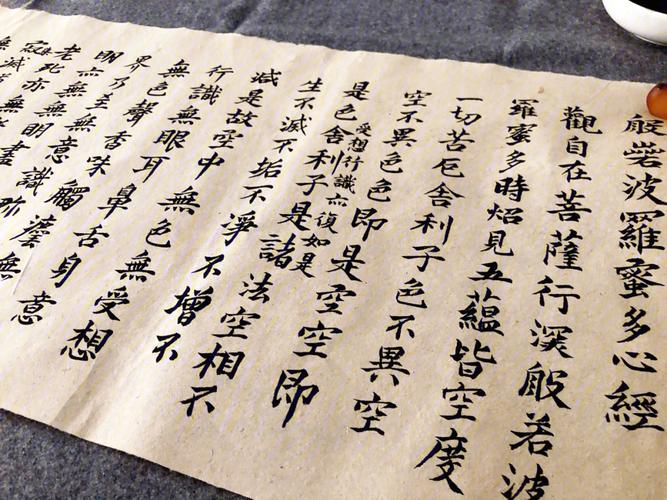 般若波羅蜜多心經
觀自在菩薩行深般若波
羅蜜多時炤見五蘊皆空度
一切苦厄舍利子色不異空
空不異色色即是空空即
是色舍利子是諸法空相不
受想行識亦復如是
生不滅不垢不淨不增不
減是故空中無色無受想
行識無眼耳鼻舌身意
無色聲香味觸法無
界乃至無意識